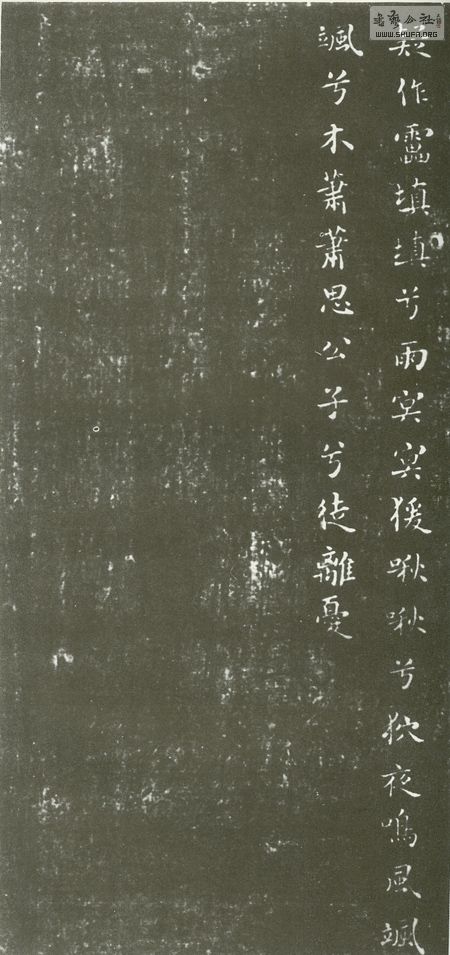 疑作靁填填兮雨冥冥猨啾啾兮狖夜鳴風颯
颯兮木蕭蕭思公子兮徒離憂
WWW.SHUFA.ORG